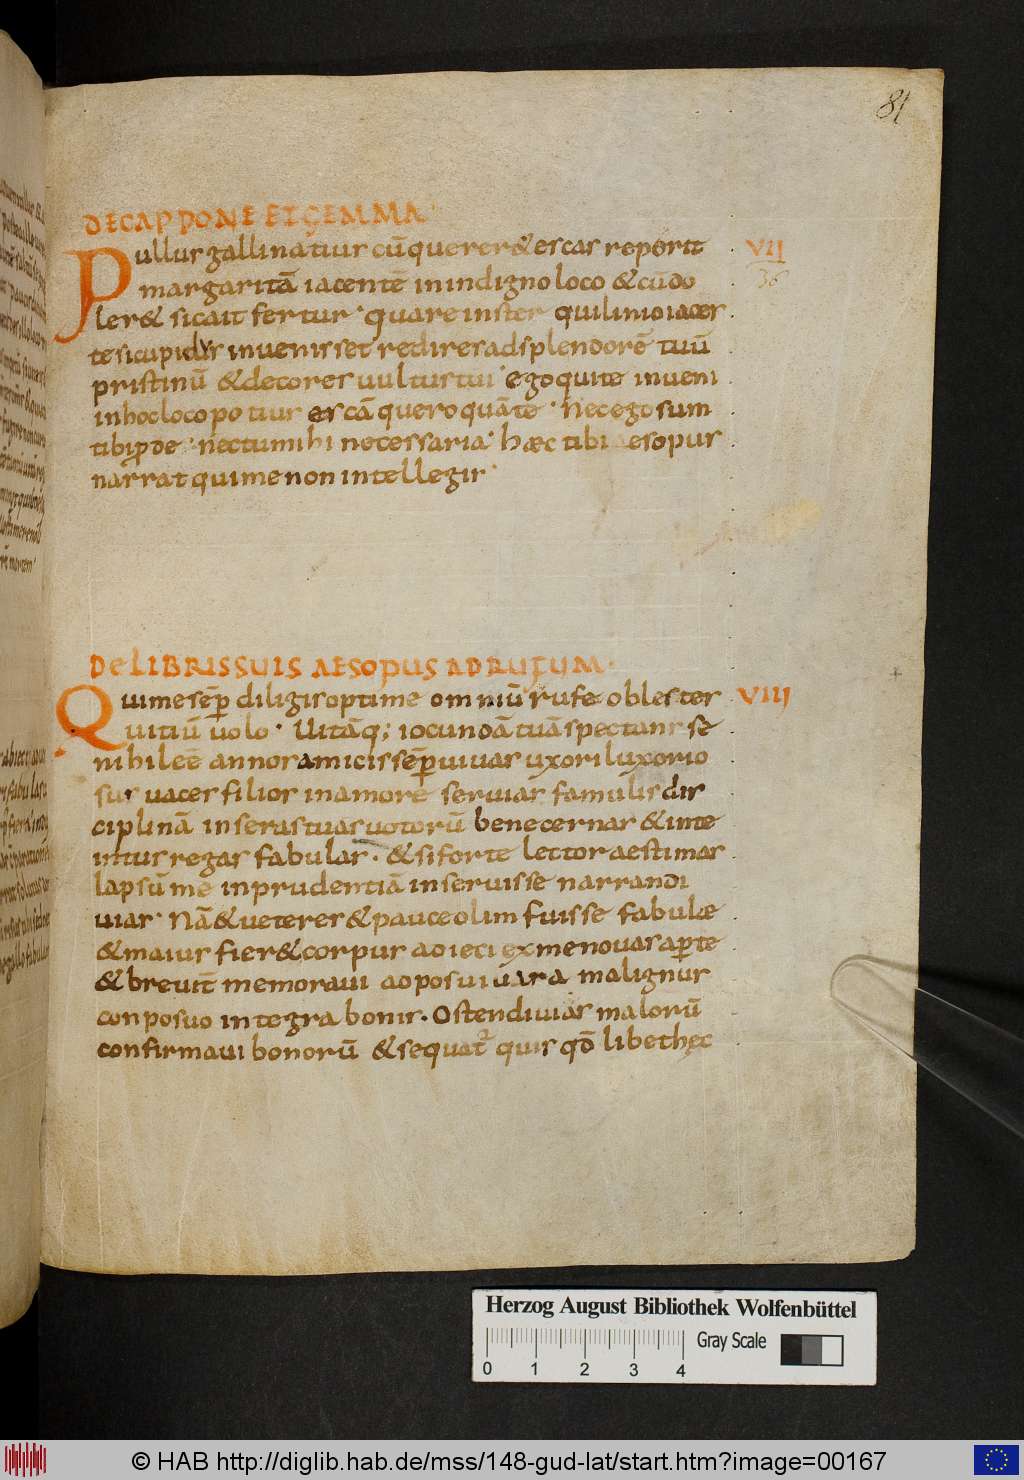 81
DECAPPONE ET GEMMA
Pullus gallinatiur cū querer& escas reperit
VII
36
margaritā iacentē in indigno loco &cūdo
ler& sicait fertur · quare inster quilinio iaces
te sicupidus invenisset redires adsplendorē tuū
pristinū &decores uultus tui · ego qui te inveni
inhoc loco potiur escā quero quā te · Nec ego sum
tibi p̄de · nec tu mihi necessaria · hæc tibi aesopus
narrat qui me non intellegis ·
DE LIBRIS SUIS AESOPUS AD RUFUM ·
Qui me sēp diligis optime omniū rufe obles ter
VIII
uitiū uolo · Uitāq; iocundā tuā spectans se
nihileē annos amicis sēp uiuas uxori luxorio
sus vaces filios in amorē seruias famulis dis
ciplinā in seras tuas uotorū bene cernas & inte
intus regas fabulas · & si forte lector aestimas
lapsū me inprudentiā inservisse narrandi
uias · Nā &ueteres & pauce olim fuisse fabulæ
& maius fier& corpus adieci ex me novas ap̄te
& breuit̄ memoravi adposui vara malignus
conposuo integra bonis · Ostendi uias malorū
confirmaui bonorū & sequat̉ quis qd̄ libet hęc
Herzog August Bibliothek Wolfenbüttel
Gray Scale
0 1 2 3 4
© HAB http://diglib.hab.de/mss/148-gud-lat/start.htm?image=00167